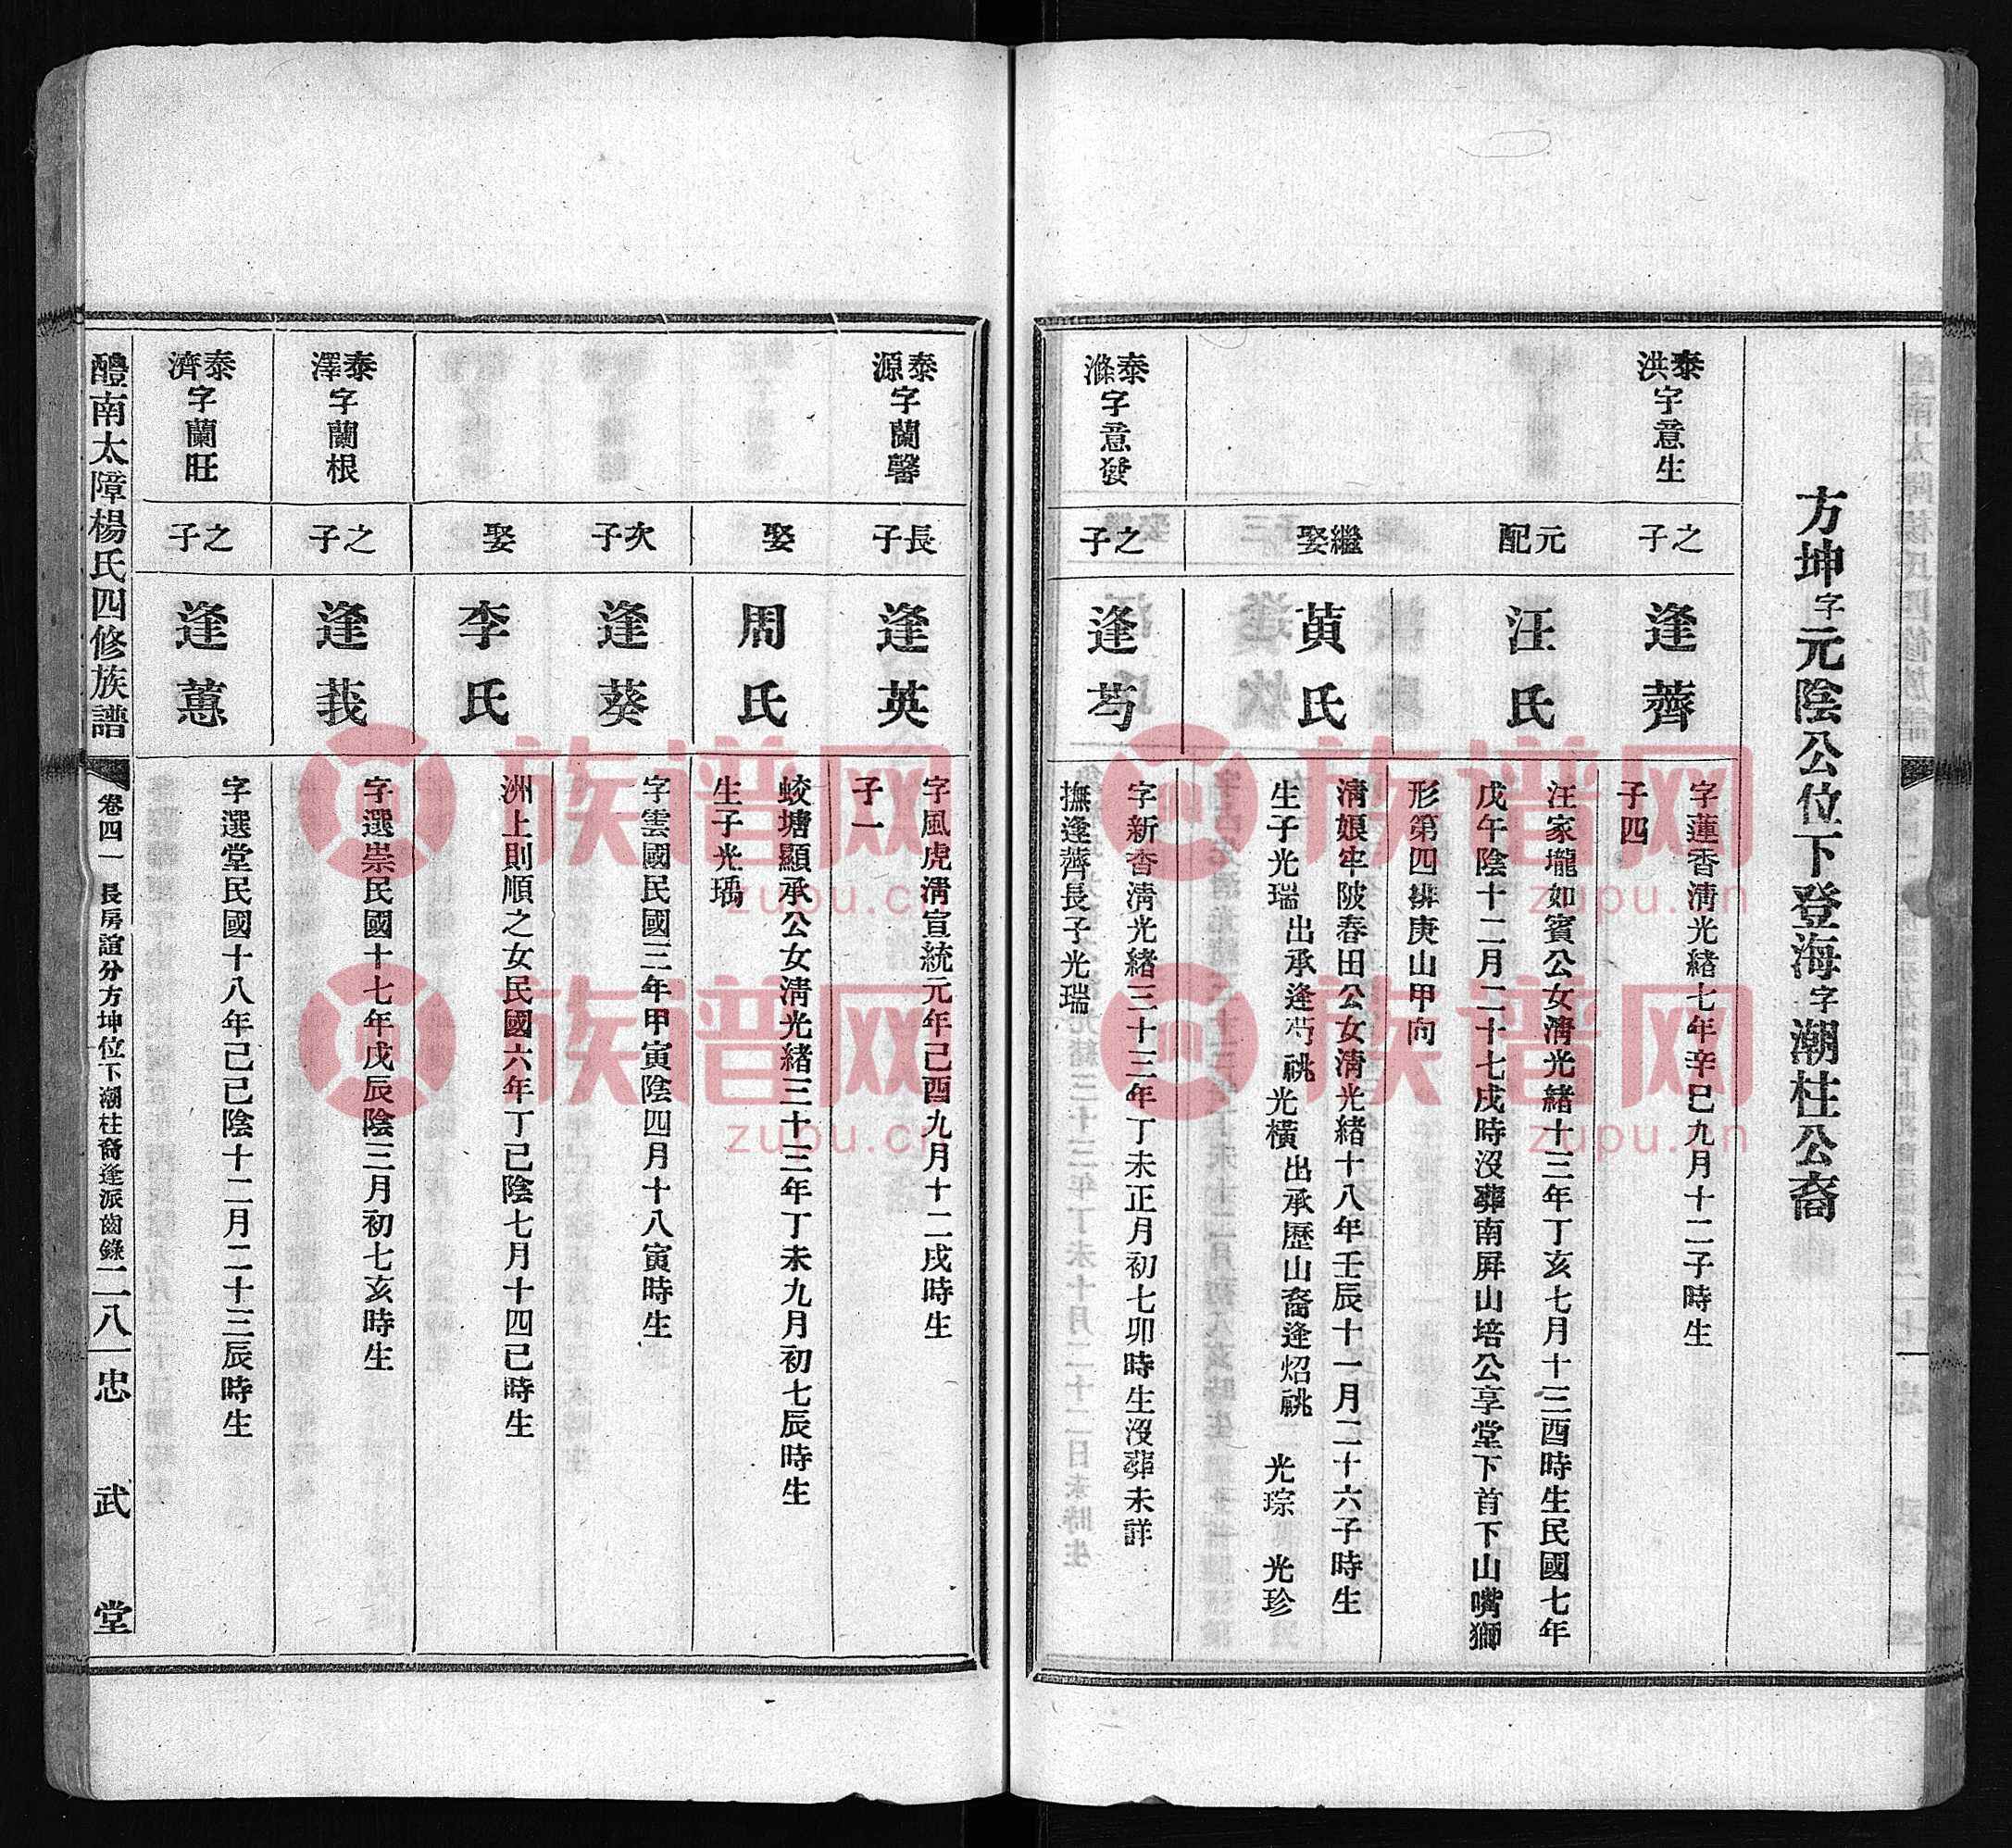 方坤字元陰公位下登海字潮柱公裔
泰洪字意生
之子
逢薺
字蓮香清光緒七年辛巳九月十二子時生
子四
元配
汪氏
汪家壠如賓公女清光緒十三年丁亥七月十三酉時生民國七年
戊午陰十二月二十七戌時沒葬南屏山培公享堂下首下山嘴獅
形第四排庚山甲向
繼娶
黃氏
清娘牢陂春田公女清光緒十八年壬辰十一月二十六子時生
生子光瑞出承逢芍祧 光橫出承歷山裔逢炤祧 光琮 光珍
泰滌字意發
之子
逢芍
字新香清光緒三十三年丁未正月初七卯時生沒葬未詳
撫逢薺長子光瑞
泰源字蘭馨
長子
逢英
字風虎清宣統元年己酉九月十二戌時生
子一
娶
周氏
蛟塘顯承公女清光緒三十三年丁未九月初七辰時生
生子光瑀
次子
逢葵
字雲國民國三年甲寅陰四月十八寅時生
娶
李氏
洲上則順之女民國六年丁巳陰七月十四巳時生
泰澤字蘭根
之子
逢莪
字選崇民國十七年戊辰陰三月初七亥時生
泰濟字蘭旺
之子
逢蕙
字選堂民國十八年己巳陰十二月二十三辰時生
醴南太障楊氏四修族譜
卷四一
長房誼分方坤位下潮柱裔逢派齒錄
二八
忠武堂
族谱网
zupu.cn
族谱网
zupu.cn
族谱网
zupu.cn
族谱网
zupu.cn